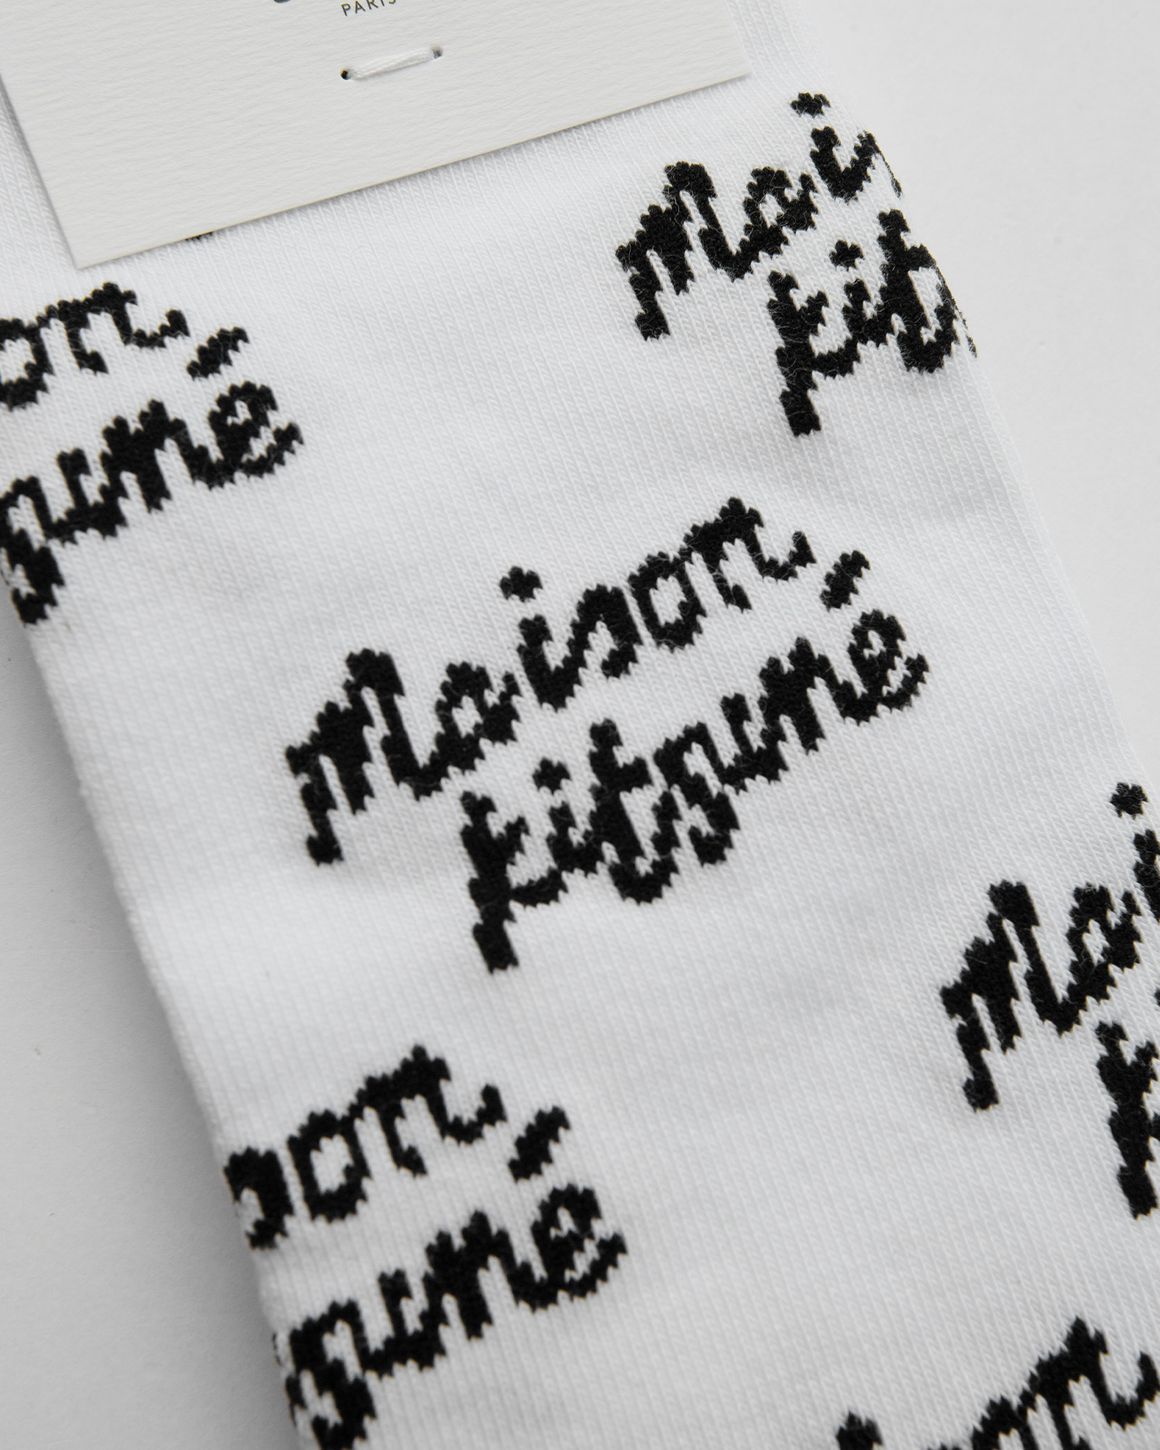 PARIS
Mais
Kit
on
uné
Maison
Kitsuné
Mai
Ki
son
suné
on